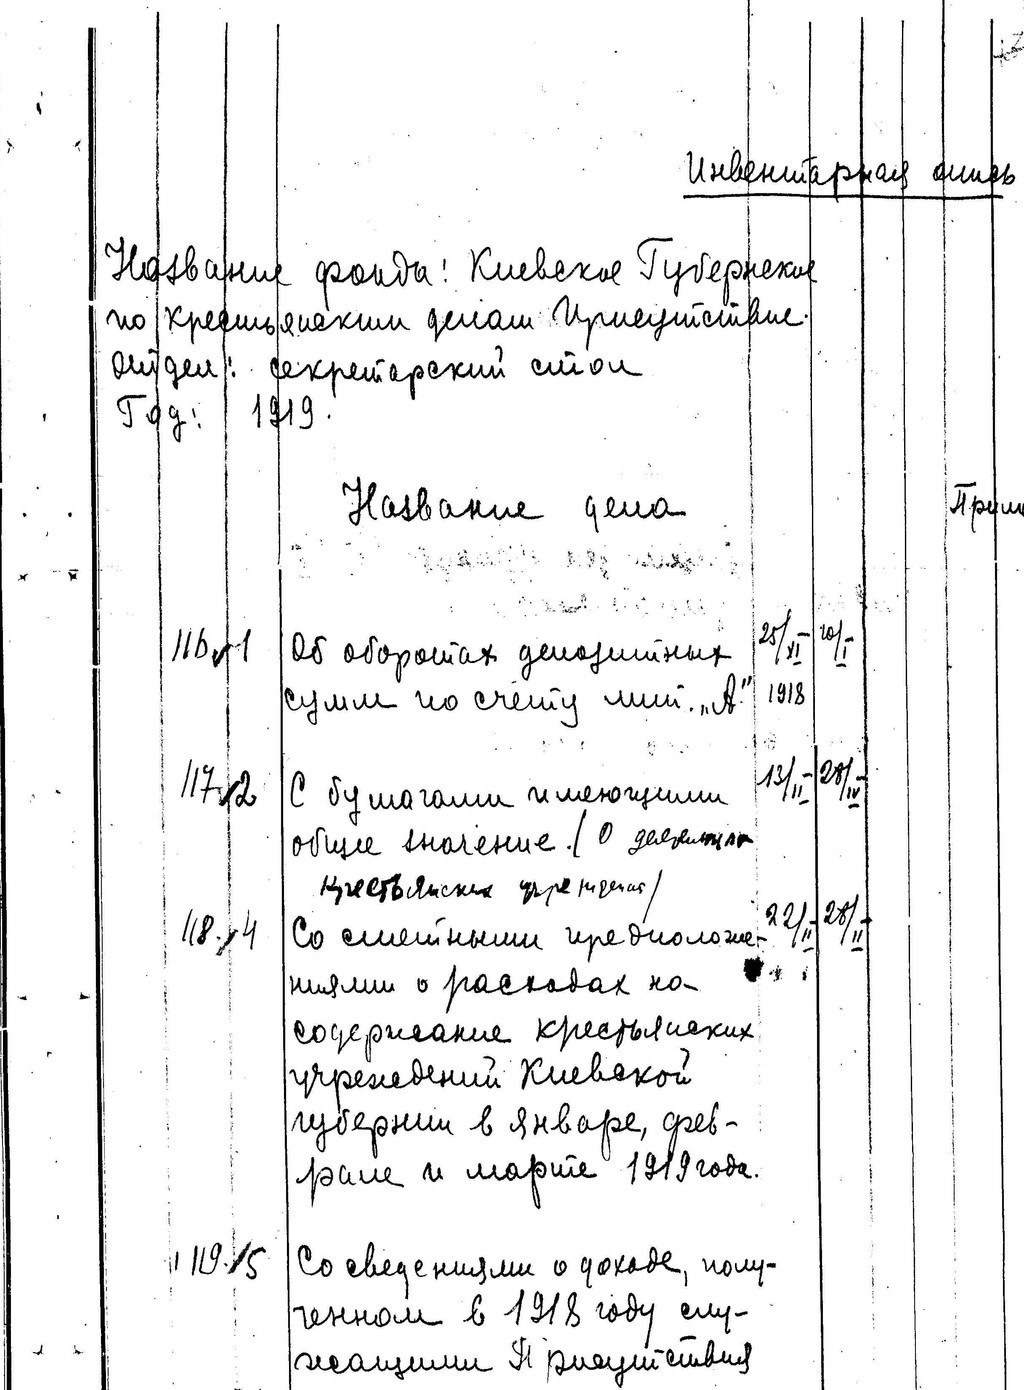 Инвентарная опись
Название фонда: Киевское Губернское
по крестьянским делам Присутствие.
Отдел: секретарский стол
Год: 1919.
Название дела
Прим
116 1 Об оборотах депозитных 25/XI 10/I
сумм по счету лит. „А" 1918
117 2 С бумагами имеющими 13/II 28/IV
общее значение. (О деятельн
крестьянских учреждений)
118. 4 Со сметными предположе- 22/II 28/II
ниями о расходах на
содержание крестьянских
учреждений Киевской
губернии в январе, фев-
рале и марте 1919 года.
119. 5 Со сведениями о доходе, полу-
ченном в 1918 году слу-
жащими Присутствия